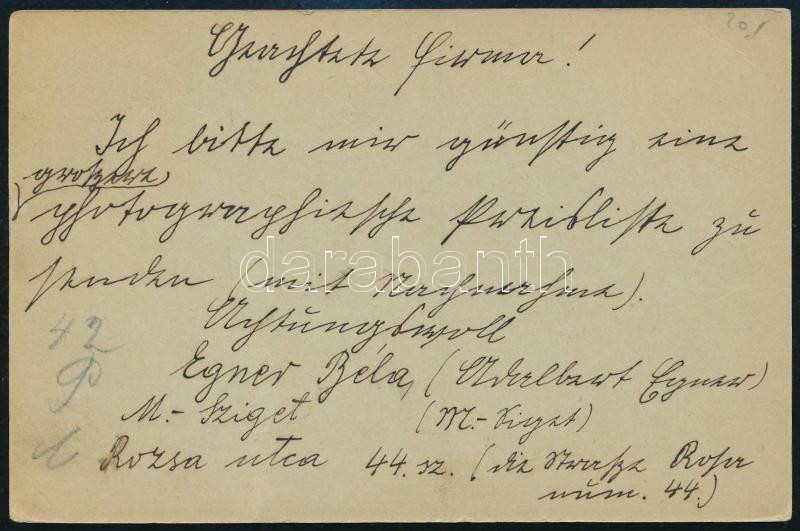 20f
Geachtete Firma!
Ich bitte mir günstig eine
groszere
photographische Preisliste zu
senden (mit Nachnahme).
Achtungsvoll
Egner Béla (Adalbert Egner)
M.-Sziget (M.-Siget)
Rozsa utca 44. sz. (die Strasze Rosa
num. 44.)
42
darabanth